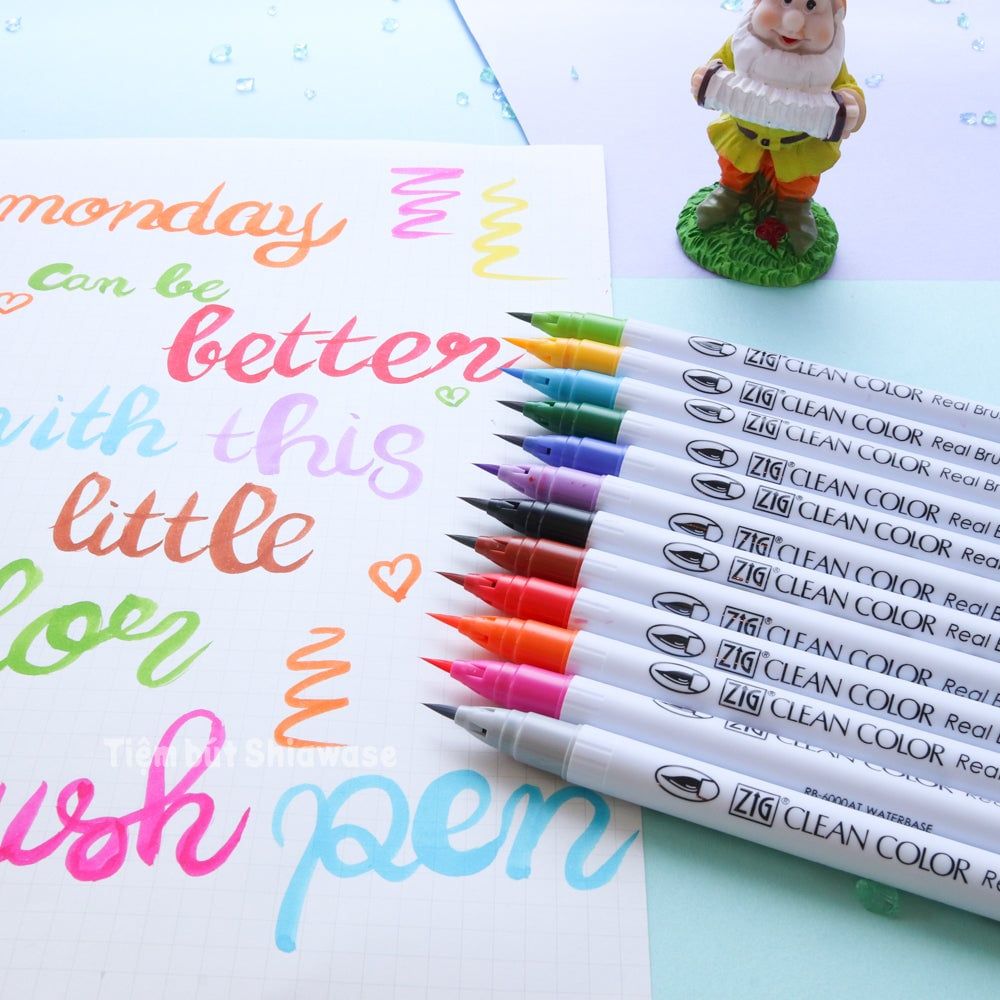 monday
can be
better
with this
little
lor
ush pen
Tiệm bút Shiawase
ZIG® CLEAN COLOR Real Bru
ZIG CLEAN COLOR Real Bru
ZIG® CLEAN COLOR Real Br
ZIG® CLEAN COLOR Real B
ZIG® CLEAN COLOR Real
ZIG® CLEAN COLOR Real B
ZIG® CLEAN COLOR Real B
ZIG® CLEAN COLOR Real B
ZIG® CLEAN COLOR Real
ZIG® CLEAN COLOR Rea
RB-6000AT WATERBASE
ZIG® CLEAN COLOR Re